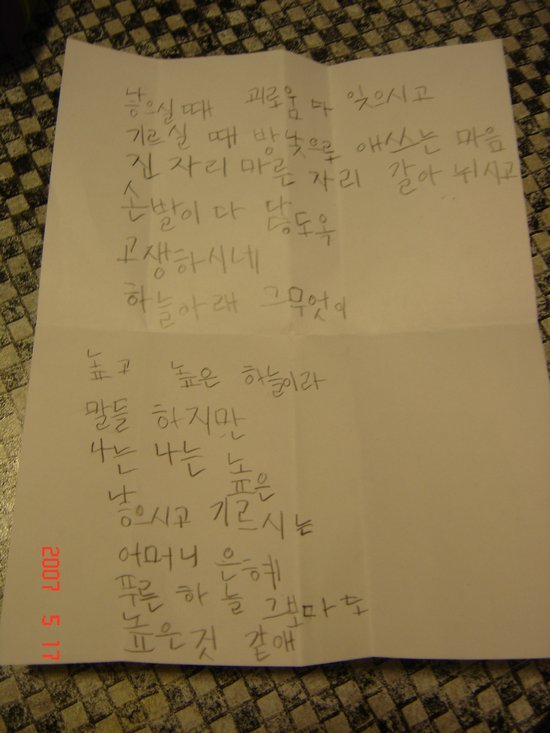 낳으실때 괴로움 다 잊으시고
기르실 때 방낮으로 애쓰는 마음
진 자리 마른 자리 갈아 뉘시고
손발이 다 닳도옥
고생하시네
하늘아래 그무엇이
높고 높은 하늘이라
말들 하지만
나는 나는 높은
낳으시고 기르시는
어머니 은혜
푸른 하늘 그보다도
높은것 같애
2007 5 17